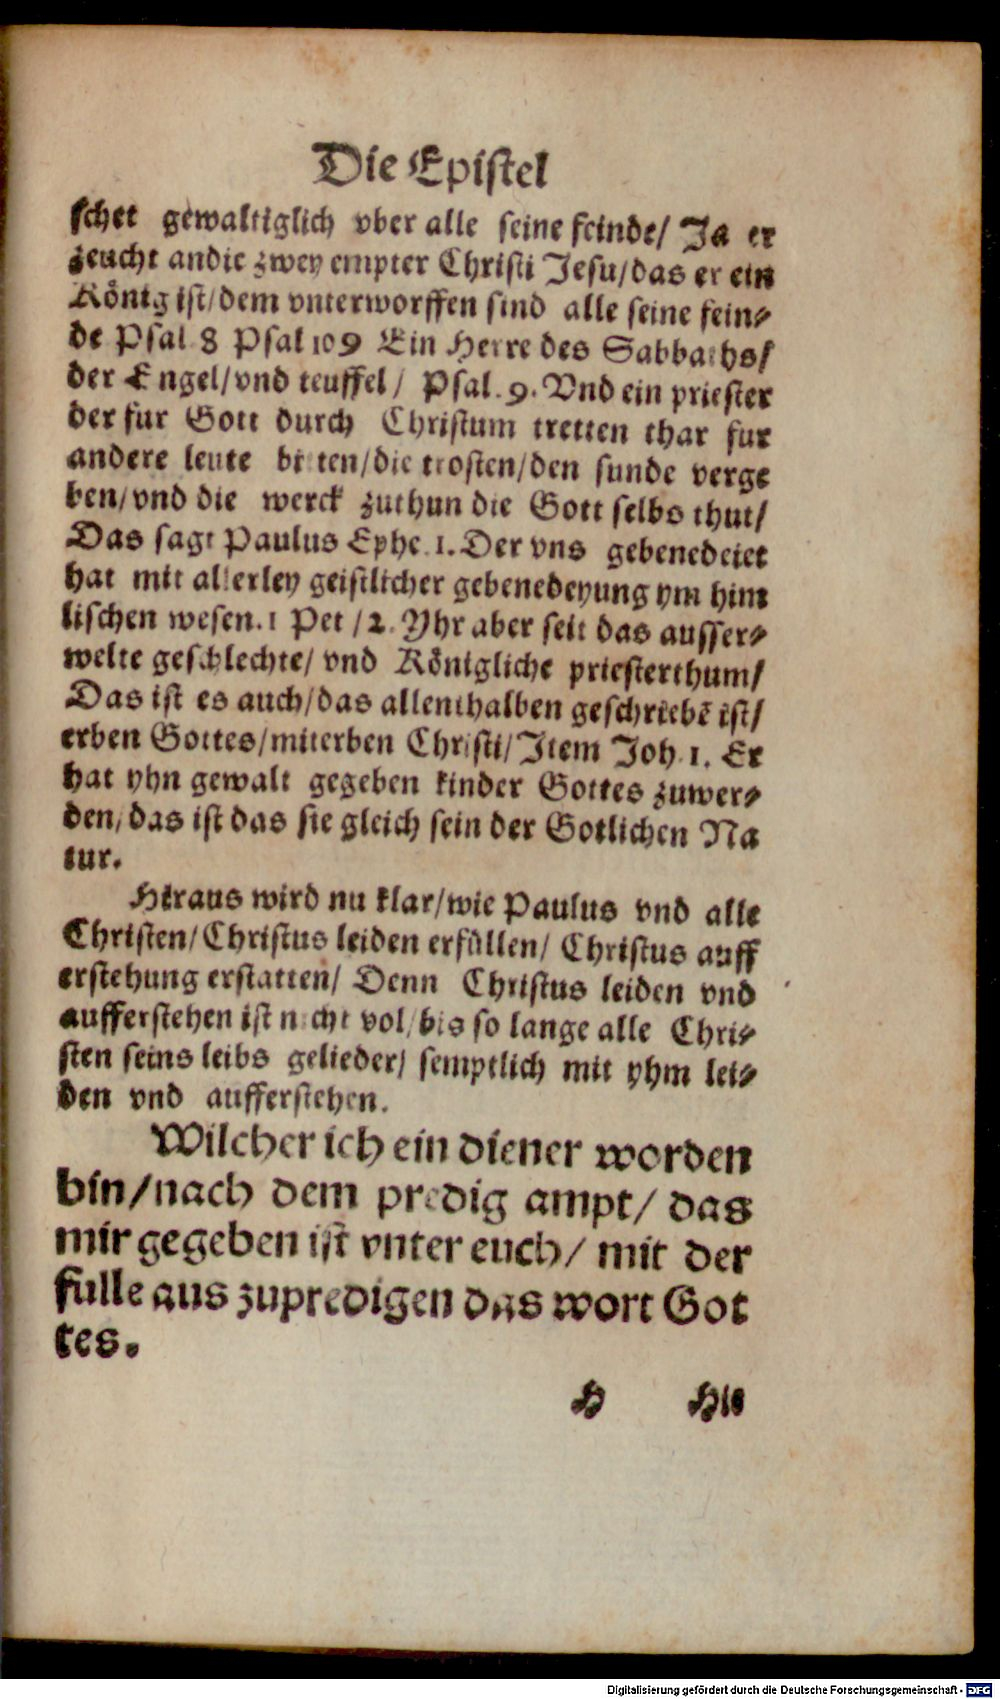 Die Epistel
schet gewaltiglich vber alle seine feinde/ Ja er
zeucht andie zwey empter Christi Jesu/das er ein
König ist/dem vnterworffen sind alle seine fein⸗
de Psal 8 Psal 109 Ein Herre des Sabbaths/
der Engel/vnd teuffel/ Psal. 9. Vnd ein priester
der fur Gott durch Christum tretten thar fur
andere leute bitten/die trosten/den sunde verge
ben/vnd die werck zuthun die Gott selbs thut/
Das sagt Paulus Ephe. 1. Der vns gebenedeiet
hat mit allerley geistlicher gebenedeyung ym him
lischen wesen. 1 Pet /2. Yhr aber seit das ausser⸗
welte geschlechte/ vnd Königliche priesterthum/
Das ist es auch/das allenthalben geschriebē ist/
erben Gottes/miterben Christi/Item Joh. 1. Er
hat yhn gewalt gegeben kinder Gottes zuwer⸗
den/das ist das sie gleich sein der Gotlichen Na
tur.
Hiraus wird nu klar/wie Paulus vnd alle
Christen/Christus leiden erfüllen/ Christus auff
erstehung erstatten/ Denn Christus leiden vnd
aufferstehen ist nicht vol/bis so lange alle Chri⸗
sten seins leibs gelieder/ semptlich mit yhm lei⸗
den vnd aufferstehen.
Wilcher ich ein diener worden
bin/nach dem predig ampt/ das
mir gegeben ist vnter euch/ mit der
fulle aus zupredigen das wort Got
tes.
H Hie
Digitalisierung gefördert durch die Deutsche Forschungsgemeinschaft - DFG